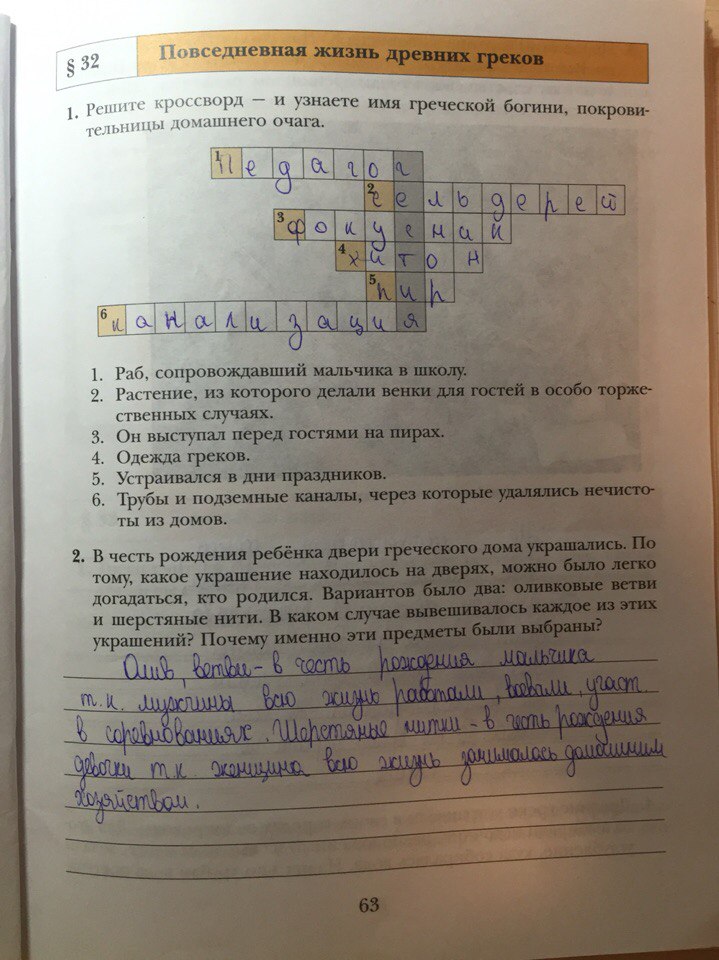 § 32
Повседневная жизнь древних греков
1. Решите кроссворд — и узнаете имя греческой богини, покрови-
тельницы домашнего очага.
1 Педагог
2 сельдерей
3 фокусник
4 хитон
5 пир
6 канализация
1. Раб, сопровождавший мальчика в школу.
2. Растение, из которого делали венки для гостей в особо торже-
ственных случаях.
3. Он выступал перед гостями на пирах.
4. Одежда греков.
5. Устраивался в дни праздников.
6. Трубы и подземные каналы, через которые удалялись нечисто-
ты из домов.
2. В честь рождения ребёнка двери греческого дома украшались. По
тому, какое украшение находилось на дверях, можно было легко
догадаться, кто родился. Вариантов было два: оливковые ветви
и шерстяные нити. В каком случае вывешивалось каждое из этих
украшений? Почему именно эти предметы были выбраны?
Олив, ветви - в честь рождения мальчика
т.к. мужчины всю жизнь работали, воевали, участ.
в соревнованиях. Шерстяные нитки - в честь рождения
девочки т.к. женщина всю жизнь занималась домашним
хозяйством.
63